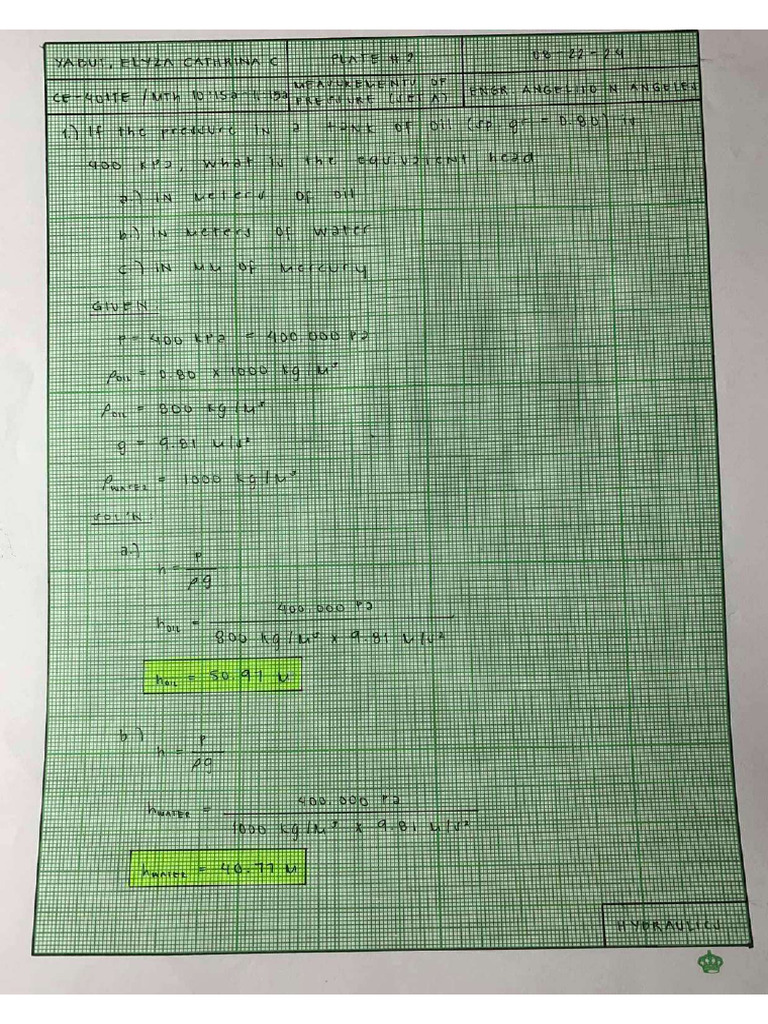 YABUT, ELYZA CATHRINA C
PLATE # 2
08-22-24
CE-401TE / MTh 10:15a-11:15a
MEASUREMENTS OF PRESSURE (SET A)
ENGR ANGELITO N ANGELES
1.) If the pressure in a tank of oil (sp gr = 0.80) is
400 kPa, what is the equivalent head
a.) IN meters of oil
b.) IN meters of water
c.) IN mm of mercury
GIVEN:
P = 400 kPa = 400,000 Pa
ρOIL = 0.80 x 1000 kg/m³
ρOIL = 800 kg/m³
g = 9.81 m/s²
ρWATER = 1000 kg/m³
SOL'N:
a.)
h = P / ρg
hOIL = 400,000 Pa / 800 kg/m³ x 9.81 m/s²
hOIL = 50.97 m
b.)
h = P / ρg
hWATER = 400,000 Pa / 1000 kg/m³ x 9.81 m/s²
hWATER = 40.77 m
HYDRAULICS